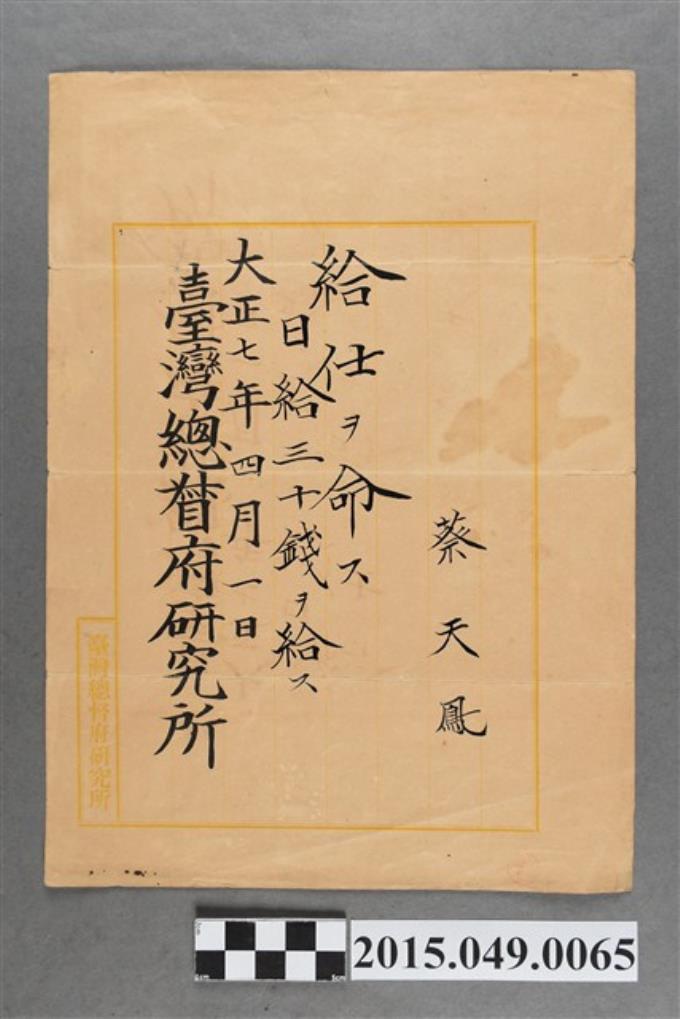 蔡天鳳
給仕ヲ命ス
日給三十錢ヲ給ス
大正七年四月一日
臺灣總督府研究所
臺灣總督府研究所
2015.049.0065